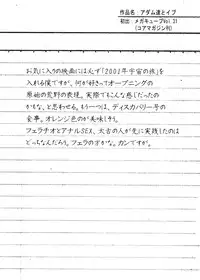 作品名:アダム達とイブ
初出:メガキューブVol.31
(コアマガジン刊)
お気に入りの映画には必ず「2001年宇宙の旅」を
入れる僕ですが、何が好きってオープニングの
原始の荒野の表現。実際でもこんな感じだったの
かもな、と思わせる。もう一つは、ディスカバリー号の
食事。オレンジ色のが美味しそう。
フェラチオとアナルSEX、太古の人が先に実践したのは
どっちなんだろう。フェラの方かな。カンですが。